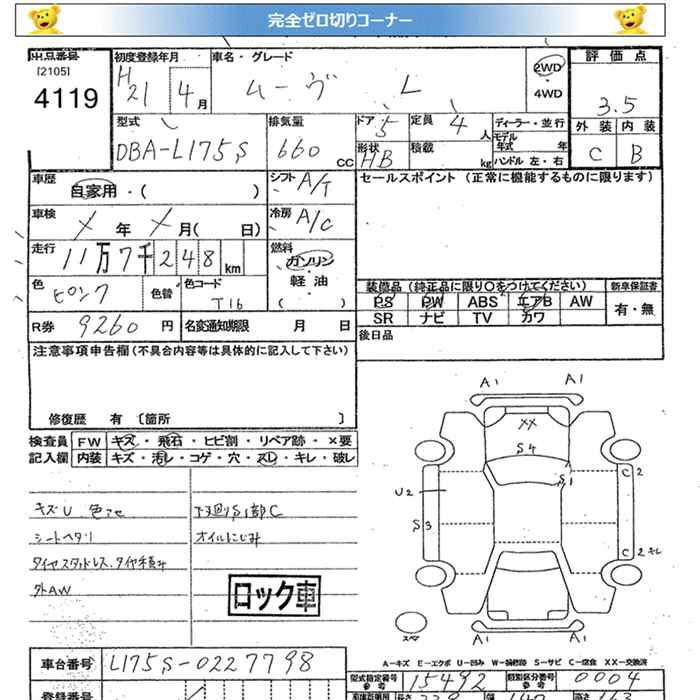 完全ゼロ切りコーナー
出品番号
[2105]
4119
初度登録年月
H21 4月
車名・グレード
ムーヴ L
2WD
・
4WD
評価点
3.5
外装 内装
C B
型式
DBA-L175S
排気量
660 CC
ドア 5
形状 HB
定員 4人
積載 kg
ディーラー・並行
モデル年式 年
ハンドル 左・右
車歴
自家用・( )
シフト A/T
セールスポイント (正常に機能するものに限ります)
車検
X年 X月( 日)
冷房 A/C
走行
11万7千248km
燃料
ガソリン
軽油
( )
色 ピンク
色替
色コード T16
装備品 (純正品に限り○をつけてください)
新車保証書
PS PW ABS エアB AW
有・無
SR ナビ TV カワ
R券 9260円
名変通知期限 月 日
後日品
注意事項申告欄(不具合内容等は具体的に記入して下さい)
修復歴 有 〔箇所 〕
検査員 FW キズ・飛石・ヒビ割・リペア跡・×要
記入欄 内装 キズ・汚レ・コゲ・穴・スレ・キレ・破レ
キズU 色アセ
シートヘタリ
タイヤスタッドレス、タイヤ積み
外AW
下廻りS1部C
オイルにじみ
ロック車
A1 A1
XX
S4
S1
C2
U2
S3
C2キレ
スペア
A1 A1
A―キズ E―エクボ U―凹み W―補修跡 S―サビ C―腐食 XX―交換済
車台番号 L175S-0227798
型式指定番号 参考 15492
類別区分番号 参考 0004